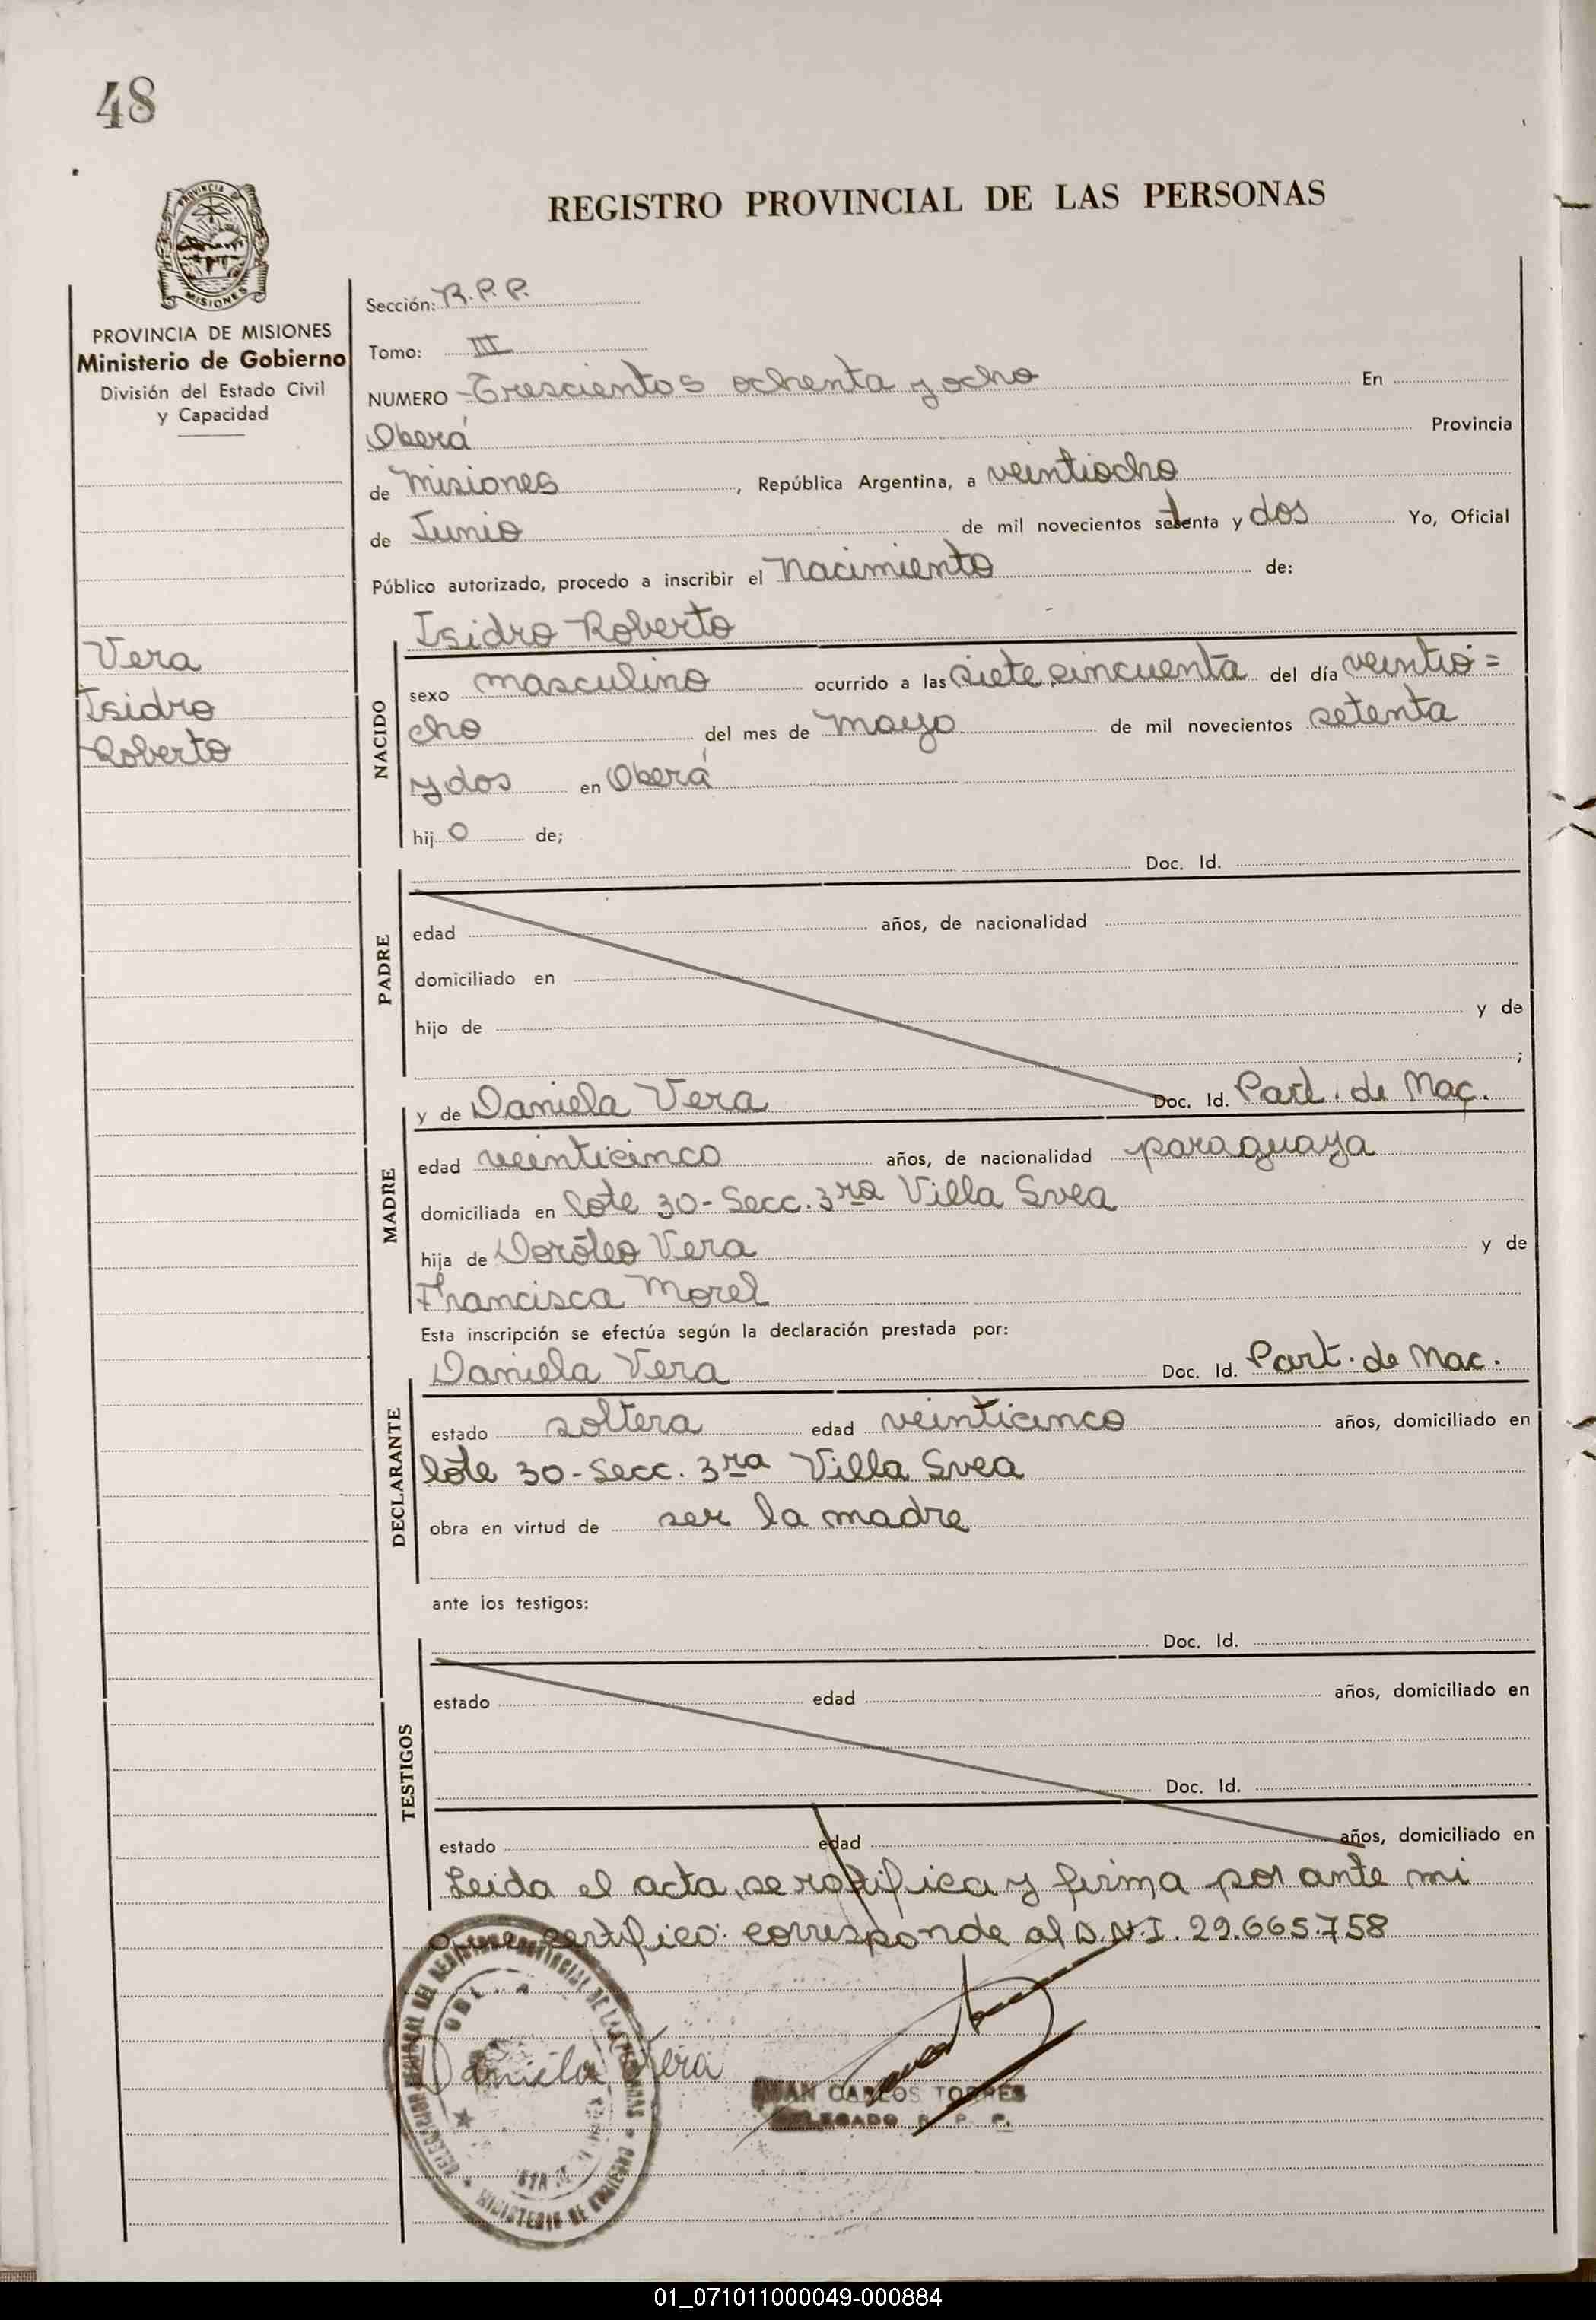 48
REGISTRO PROVINCIAL DE LAS PERSONAS
PROVINCIA DE
MISIONES
PROVINCIA DE MISIONES
Ministerio de Gobierno
División del Estado Civil
y Capacidad
Vera
Isidro
Roberto
Sección: R.P.P.
Tomo: III
NUMERO Trescientos ochenta y ocho En
Oberá Provincia
de Misiones, República Argentina, a veintiocho
de Junio de mil novecientos setenta y dos Yo, Oficial
Público autorizado, procedo a inscribir el Nacimiento de:
NACIDO
Isidro Roberto
sexo masculino ocurrido a las siete, cincuenta del día veintio=
cho del mes de mayo de mil novecientos setenta
y dos en Oberá
hijo de;
PADRE
Doc. Id.
edad años, de nacionalidad
domiciliado en
hijo de y de
;
MADRE
y de Daniela Vera Doc. Id. Part. de Nac.
edad veinticinco años, de nacionalidad paraguaya
domiciliada en lote 30-Secc. 3ra Villa Svea
hija de Doróteo Vera y de
Francisca Morel
Esta inscripción se efectúa según la declaración prestada por:
DECLARANTE
Daniela Vera Doc. Id. Part. de Nac.
estado soltera edad veinticinco años, domiciliado en
lote 30-Secc. 3ra Villa Svea
obra en virtud de ser la madre
ante los testigos:
TESTIGOS
Doc. Id.
estado edad años, domiciliado en
Doc. Id.
estado edad años, domiciliado en
Leida el acta, se ratifica y firma por ante mi
que certifico: corresponde al D.N.I. 29.665.758
Daniela Vera
JUAN CARLOS TORRES
DELEGADO R. P. P.
MINISTERIO DE GOBIERNO
01_071011000049-000884